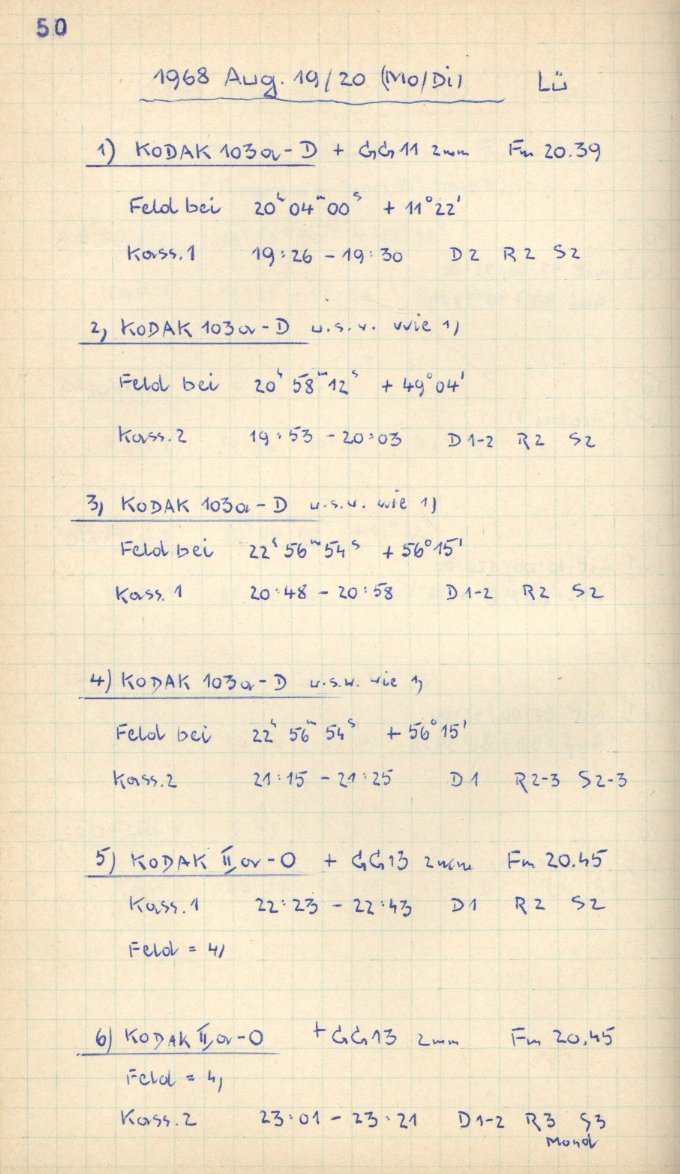 50
1968 Aug. 19/20 (Mo/Di) Lü
1) KODAK 103a-D + GG11 2mm Fm 20.39
Feld bei 20ʰ04ᵐ00ˢ +11°22'
Kass.1 19:26 - 19:30 D2 R2 S2
2) KODAK 103a-D u.s.w. wie 1)
Feld bei 20ʰ58ᵐ12ˢ +49°04'
Kass.2 19:53 - 20:03 D1-2 R2 S2
3) KODAK 103a-D u.s.w. wie 1)
Feld bei 22ʰ56ᵐ54ˢ +56°15'
Kass.1 20:48 - 20:58 D1-2 R2 S2
4) KODAK 103a-D u.s.w. wie 1)
Feld bei 22ʰ56ᵐ54ˢ +56°15'
Kass.2 21:15 - 21:25 D1 R2-3 S2-3
5) KODAK IIa-O + GG13 2mm Fm 20.45
Kass.1 22:23 - 22:43 D1 R2 S2
Feld = 4)
6) KODAK IIa-O + GG13 2mm Fm 20.45
Feld = 4)
Kass.2 23:01 - 23:21 D1-2 R3 S3
Mond